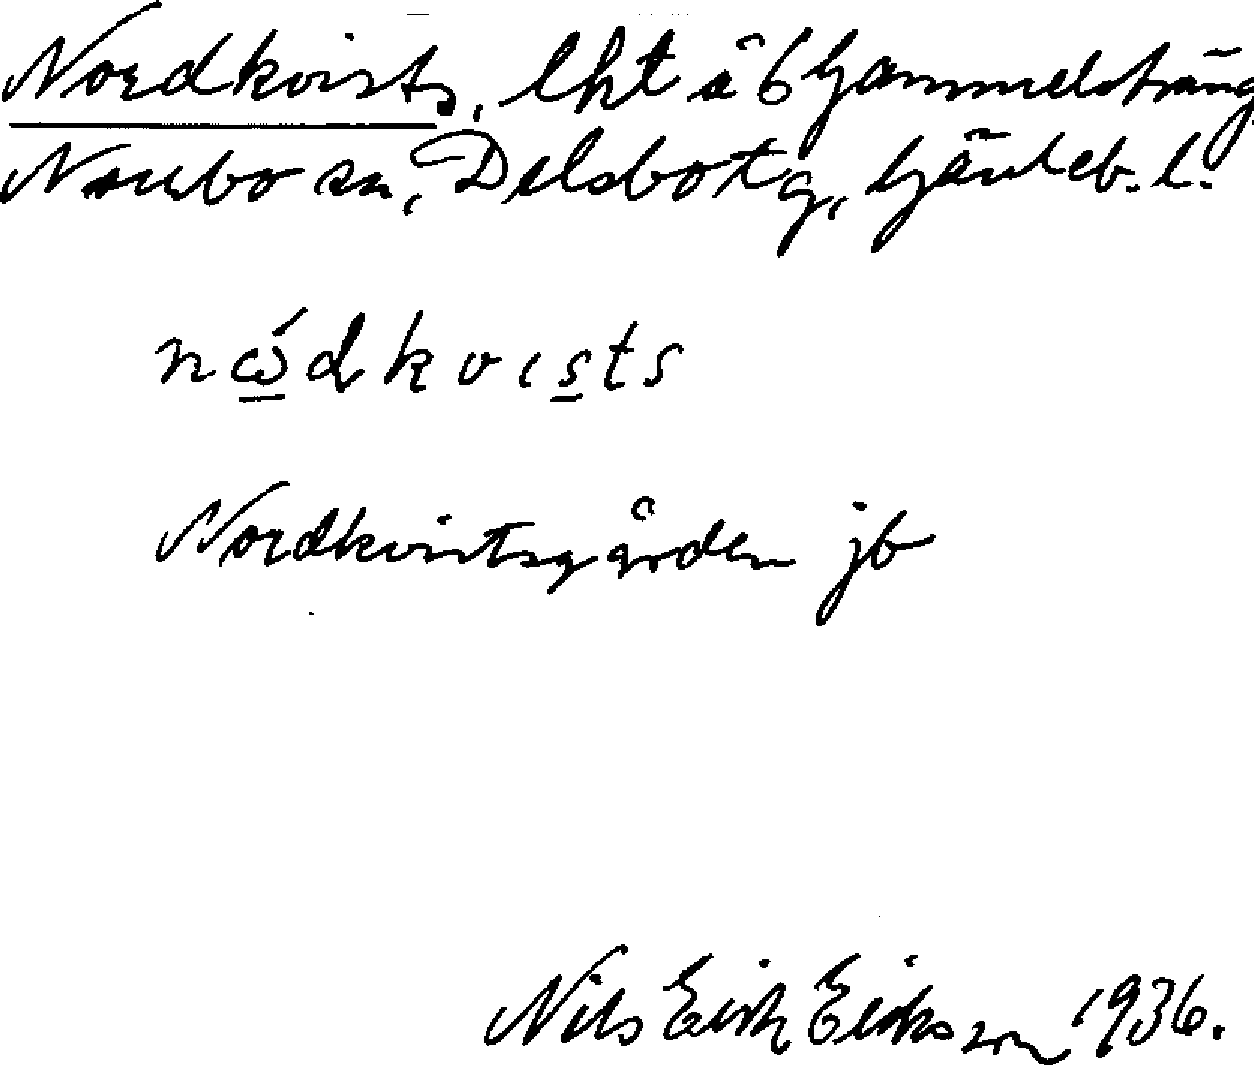 Nordkvists, lht å 6 Gammelsträng
Norrbo sn, Delsbo tg, Gävleb. l.
nώdkvısts
Nordkvistsgården jb
Nils Erik Eriksson 1936.